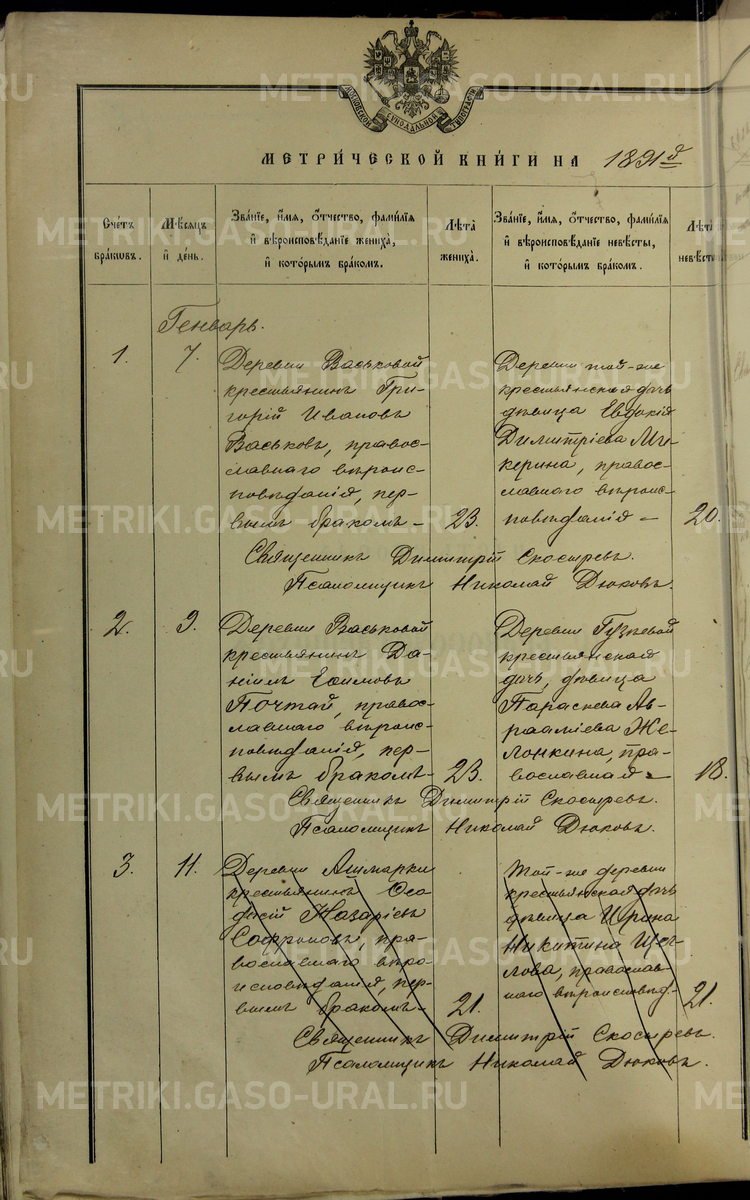 МОСКОВСКОЙ СѴНОДАЛЬНОЙ ТИПОГРАФІИ
МЕТРИ́ЧЕСКОЙ КНИ́ГИ НА 1891й
Сче́тъ бра́кѡвъ.
Мѣ́сѧцъ и҆ де́нь.
Зва́нїе, и҆́мѧ, ѻ҆́тчество, фами́лїѧ
и҆ вѣроисповѣ́данїе жениха̀,
и҆ кото́рымъ бра́комъ.
Лѣта̀ жениха̀.
Зва́нїе, и҆́мѧ, ѻ҆́тчество, фами́лїѧ
и҆ вѣроисповѣ́данїе невѣ́сты,
и҆ кото́рымъ бра́комъ.
Лѣта̀ невѣ́сты
Генварь.
1.
7.
Деревни Васьковой
крестьянинъ Гри-
горій Ивановъ
Васьковъ, право-
славнаго вѣроис-
повѣданія, пер-
вымъ бракомъ –
23.
Деревни той-же
крестьянская дочь
дѣвица Евдокія
Димитріева Ми-
керина, право-
славнаго вѣроис-
повѣданія –
20.
Священникъ Димитрій Скосыревъ.
Псаломщикъ Николай Дюковъ.
2.
9.
Деревни Васьковой
крестьянинъ Да-
ніилъ Ефимовъ
Почтай, правос-
лавнаго вѣроис-
повѣданія, пер-
вымъ бракомъ-
23.
Деревни Гузѣевой
крестьянская
дочь, дѣвица
Параскева Ав-
рааміева Же-
лонкина, пра-
вославная –
18.
Священникъ Димитрій Скосыревъ.
Псаломщикъ Николай Дюковъ.
3.
11.
Деревни Ашмарки
крестьянинъ Ѳео-
досій Назаріевъ
Софроновъ, пра-
вославнаго вѣро-
исповѣданія, пер-
вымъ бракомъ-
21.
Той-же деревни
крестьянская дочь
дѣвица Ирина
Никитина Щег-
лова, православ-
наго вѣроисповѣд-
21.
Священникъ Димитрій Скосыревъ.
Псаломщикъ Николай Дюковъ.
METRIKI.GASO-URAL.RU